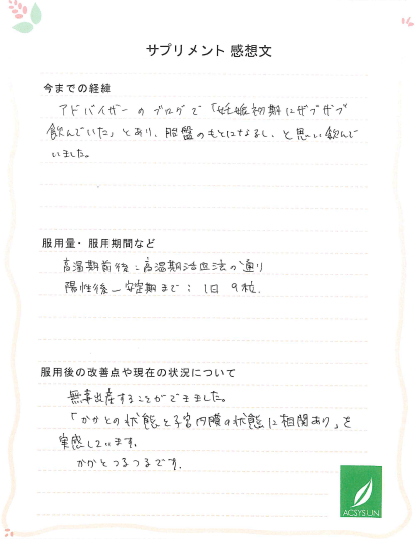 サプリメント 感想文
今までの経緯
アドバイザーのブログで「妊娠初期にザブザブ
飲んでいた」とあり、胎盤のもとになるし、と思い飲んで
いました。
服用量・服用期間など
高温期前後：高温期活血法の通り
陽性後〜安定期まで：1日 9粒.
服用後の改善点や現在の状況について
無事出産することができました。
「かかとの状態と子宮内膜の状態に相関あり」を
実感しています。
かかとつるつるです。
ACSYS LIN